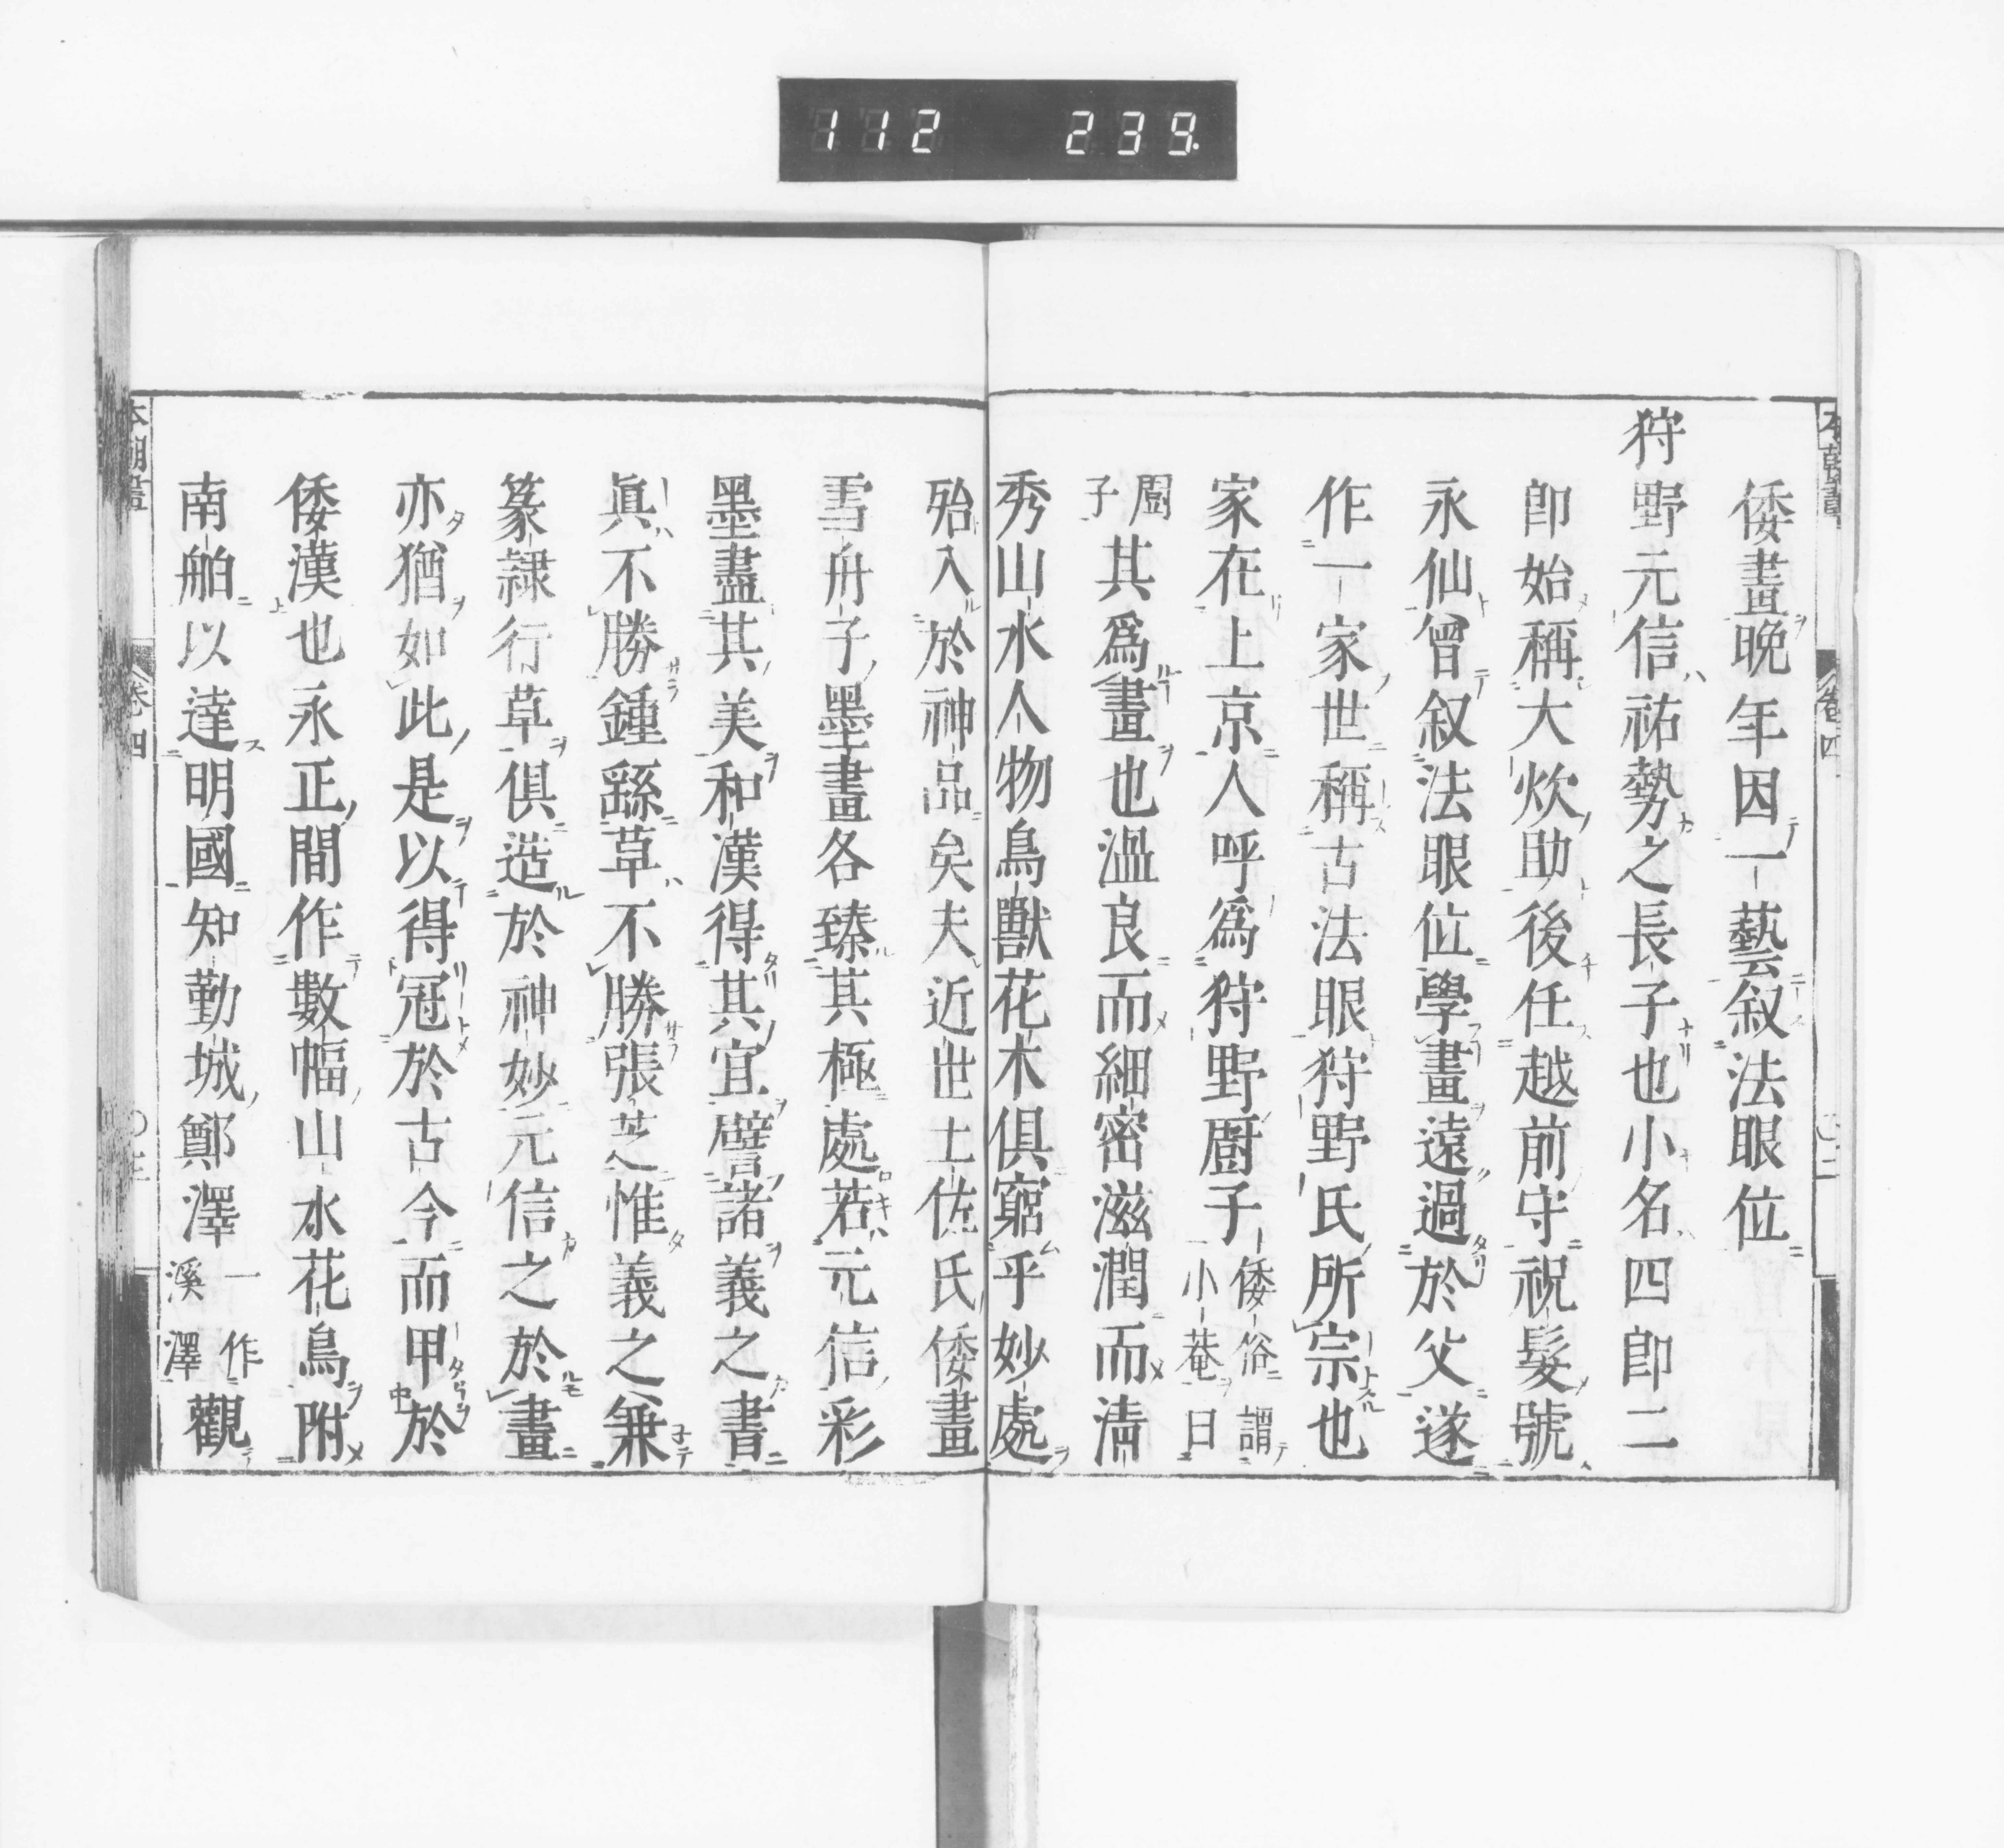 112 239
倭畫晩年因一藝叙法眼位
狩野元信祐勢之長子也小名四郎二
郎始稱大炊助後任越前守祝髮號
永仙曾叙法眼位學畫遠過於父遂
作一家世稱古法眼狩野氏所宗也
家在上京人呼爲狩野厨子倭俗謂小菴曰
圖子其爲畫也溫良而細密滋潤而淸
秀山水人物鳥獸花木俱窮乎妙處
殆入於神品矣夫近世土佐氏倭畫
雪舟子墨畫各臻其極處若元信彩
墨盡其美和漢得其宜譬諸義之書
眞不勝鍾繇草不勝張芝惟義之兼
篆隷行草俱造於神妙元信之於畫
亦猶如此是以得冠於古今而甲於
倭漢也永正間作數幅山水花鳥附
南舶以達明國知勤城鄭澤一作溪澤觀
本朝畫
卷四